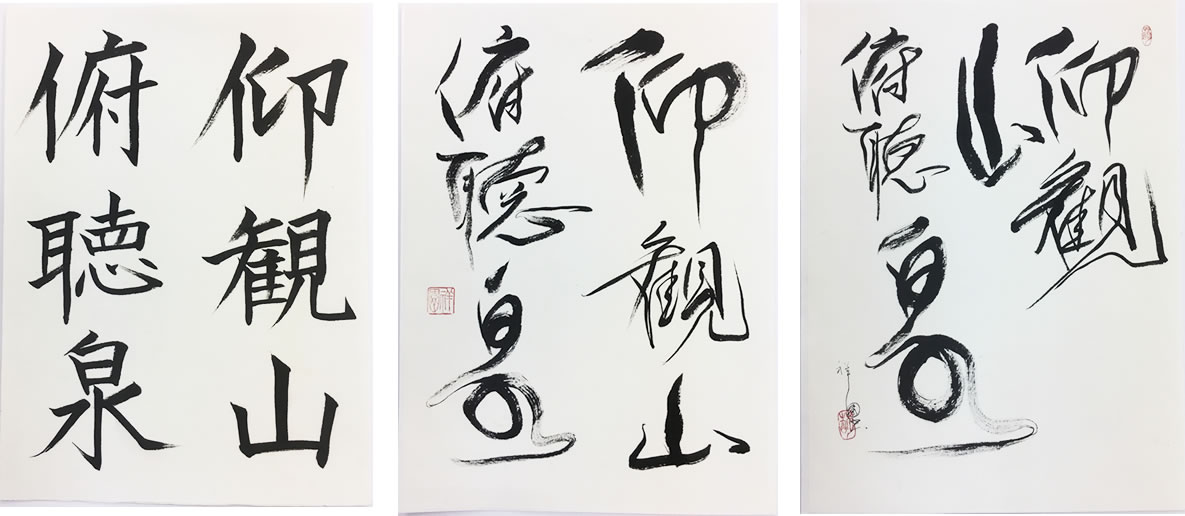 仰観山
俯聴泉
仰観山
俯聴泉
仰観山
俯聴泉
祥